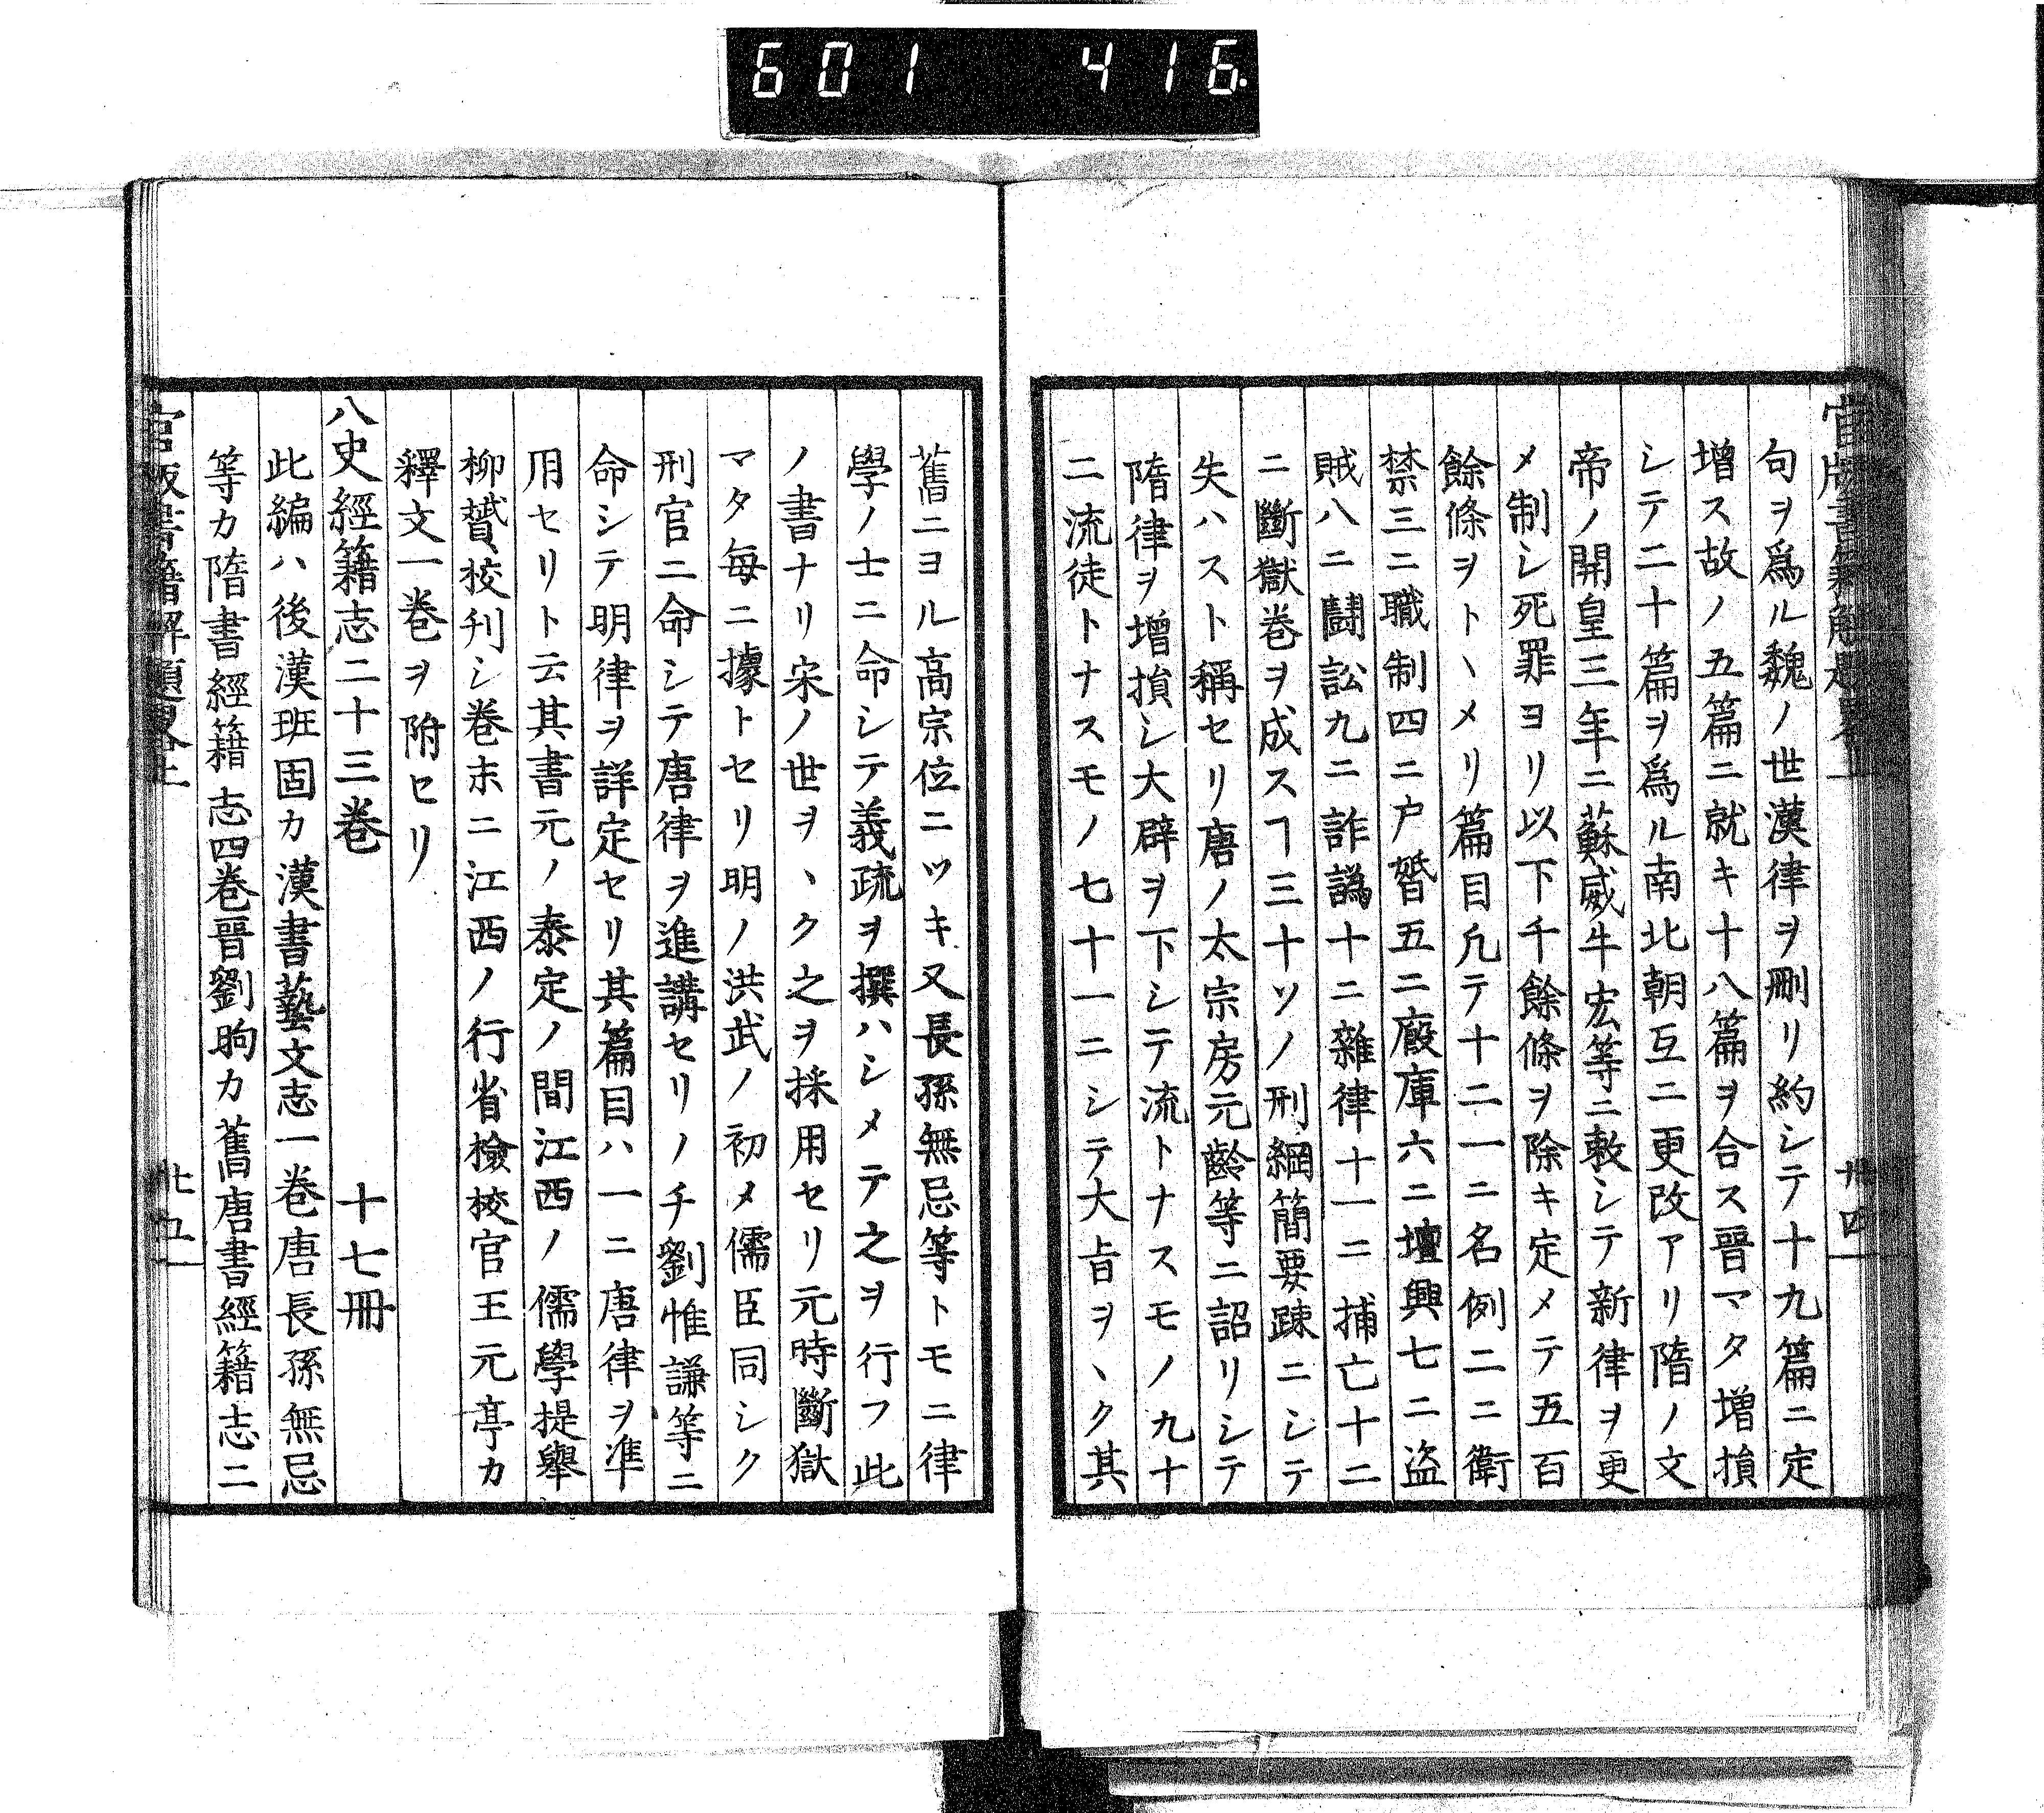 601 416
官版書籍解題畧上 廿四
句ヲ爲ル魏ノ世漢律ヲ刪リ約シテ十九篇ニ定
增ス故ノ五篇ニ就キ十八篇ヲ合ス晉マタ增損
シテ二十篇ヲ爲ル南北朝互ニ更改アリ隋ノ文
帝ノ開皇三年ニ蘇威牛宏等ニ敕シテ新律ヲ更
メ制シ死罪ヨリ以下千餘條ヲ除キ定メテ五百
餘條ヲトヽメリ篇目凡テ十二一ニ名例二ニ衛
禁三ニ職制四ニ戸婚五ニ廐庫六ニ擅興七ニ盜
賊八ニ鬪訟九ニ詐譌十ニ雜律十一ニ捕亡十二
ニ斷獄卷ヲ成スヿ三十ソノ刑綱簡要疎ニシテ
失ハスト稱セリ唐ノ太宗房元齡等ニ詔リシテ
隋律ヲ增損シ大辟ヲ下シテ流トナスモノ九十
二流徒トナスモノ七十一ニシテ大㫖ヲヽク其
舊ニヨル高宗位ニツキ又長孫無忌等トモニ律
學ノ士ニ命シテ義疏ヲ撰ハシメテ之ヲ行フ此
ノ書ナリ宋ノ世ヲヽク之ヲ採用セリ元時斷獄
マタ每ニ據トセリ明ノ洪武ノ初メ儒臣同シク
刑官ニ命シテ唐律ヲ進講セリノチ劉惟謙等ニ
命シテ明律ヲ詳定セリ其篇目ハ一ニ唐律ヲ準
用セリト云其書元ノ泰定ノ間江西ノ儒學提舉
柳贇校刋シ卷末ニ江西ノ行省檢校官王元亭カ
釋文一卷ヲ附セリ
八史經籍志二十三卷 十七冊
此編ハ後漢班固カ漢書藝文志一卷唐長孫無忌
等カ隋書經籍志四卷晉劉昫カ舊唐書經籍志二
官版書籍解題畧上 廿五